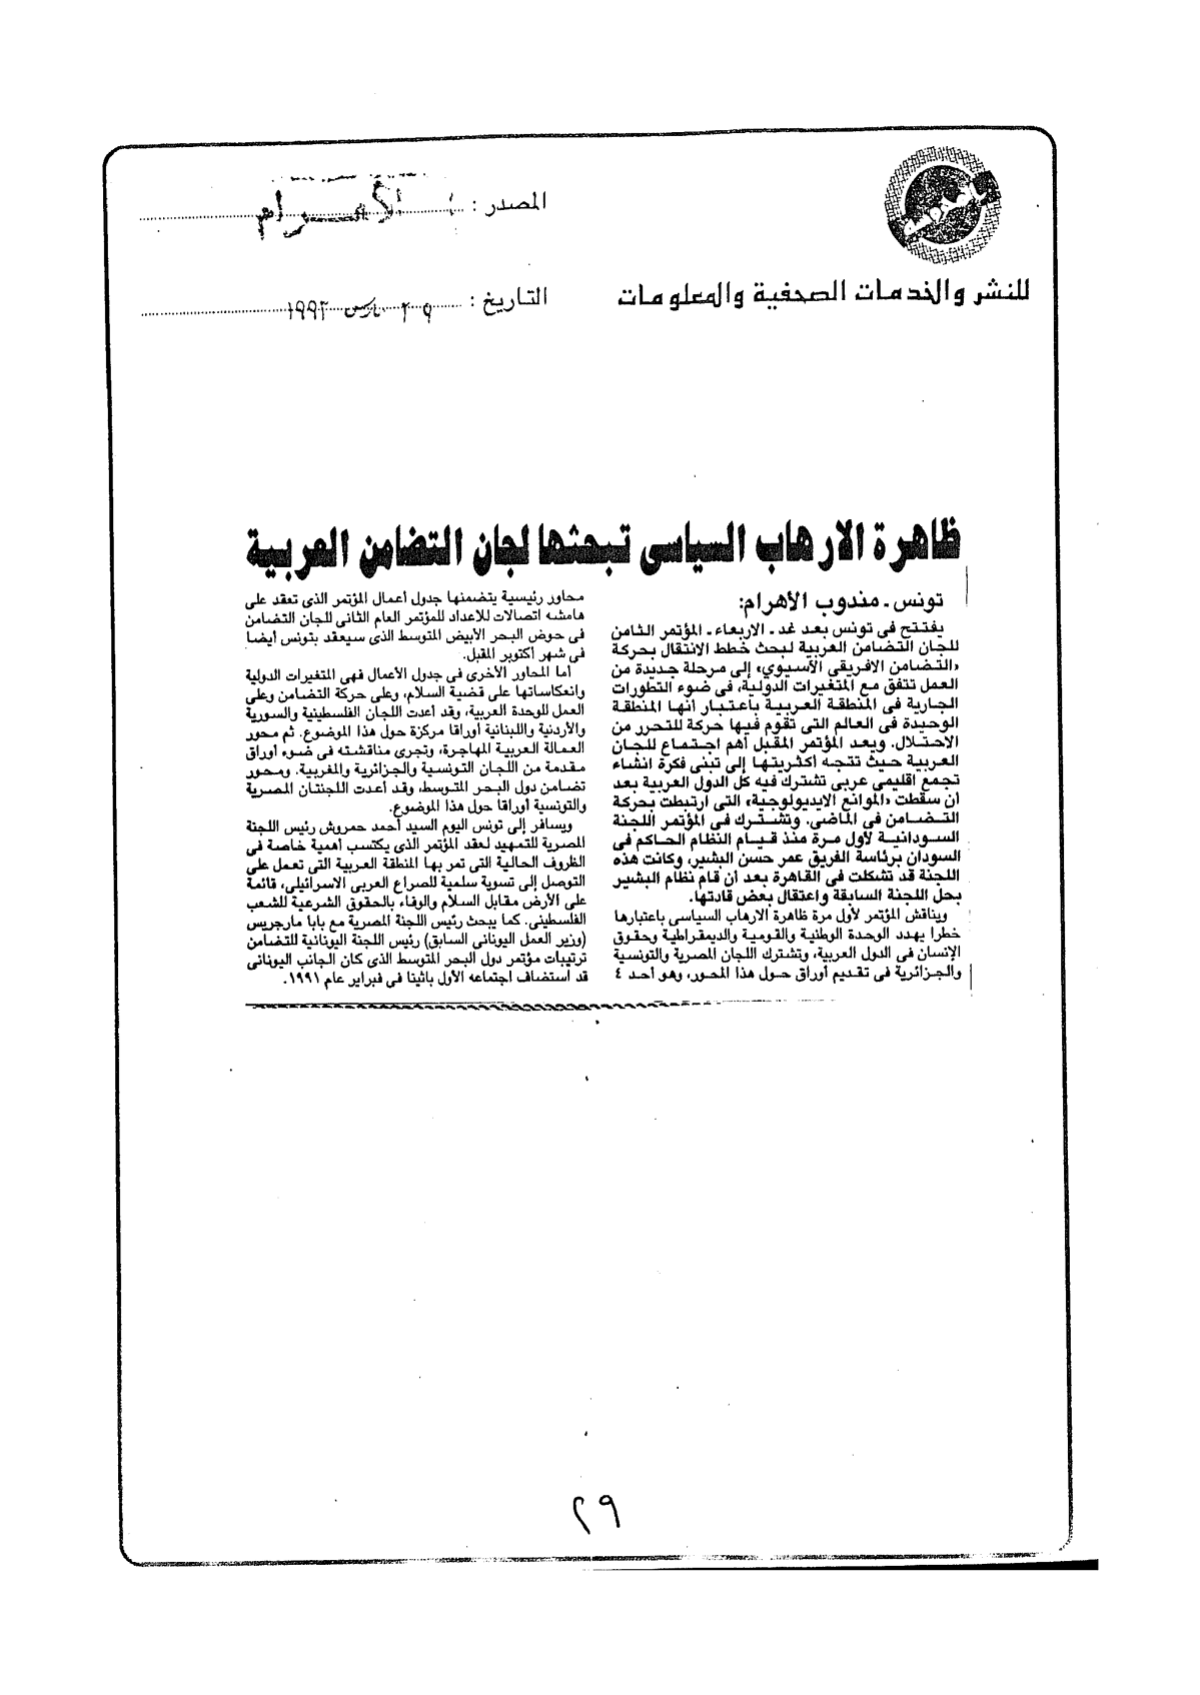 المصدر : الأهرام
للنشر والخدمات الصحفية والمعلومات
التاريخ : مارس ١٩٩٢
ظاهرة الارهاب السياسى تبحثها لجان التضامن العربية
تونس ـ مندوب الأهرام:
يفتتح فى تونس بعد غد ـ الاربعاء ـ المؤتمر الثامن
للجان التضامن العربية لبحث خطط الانتقال بحركة
«التضامن الافريقى الآسيوى» إلى مرحلة جديدة من
العمل تتفق مع المتغيرات الدولية، فى ضوء التطورات
الجارية فى المنطقة العربية باعتبار أنها المنطقة
الوحيدة فى العالم التى تقوم فيها حركة للتحرر من
الاحتلال. ويعد المؤتمر المقبل أهم اجتماع للجان
العربية حيث تتجه أكثريتها إلى تبنى فكرة انشاء
تجمع اقليمى عربى تشترك فيه كل الدول العربية بعد
أن سقطت «الموانع الايديولوجية» التى ارتبطت بحركة
التضامن فى الماضى. وتشترك فى المؤتمر اللجنة
السودانية لأول مرة منذ قيام النظام الحاكم فى
السودان برئاسة الفريق عمر حسن البشير، وكانت هذه
اللجنة قد تشكلت فى القاهرة بعد أن قام نظام البشير
بحل اللجنة السابقة واعتقال بعض قادتها.
ويناقش المؤتمر لأول مرة ظاهرة الارهاب السياسى باعتبارها
خطرا يهدد الوحدة الوطنية والقومية والديمقراطية وحقوق
الإنسان فى الدول العربية، وتشترك اللجان المصرية والتونسية
والجزائرية فى تقديم أوراق حول هذا المحور، وهو أحد ٤
محاور رئيسية يتضمنها جدول أعمال المؤتمر الذى تعقد على
هامشه اتصالات للاعداد للمؤتمر العام الثانى للجان التضامن
فى حوض البحر الأبيض المتوسط الذى سيعقد بتونس أيضا
فى شهر أكتوبر المقبل.
أما المحاور الأخرى فى جدول الأعمال فهى المتغيرات الدولية
وانعكاساتها على قضية السلام، وعلى حركة التضامن وعلى
العمل للوحدة العربية، وقد أعدت اللجان الفلسطينية والسورية
والأردنية واللبنانية أوراقا مركزة حول هذا الموضوع. ثم محور
العمالة العربية المهاجرة، وتجرى مناقشته فى ضوء أوراق
مقدمة من اللجان التونسية والجزائرية والمغربية. ومحور
تضامن دول البحر المتوسط، وقد أعدت اللجنتان المصرية
والتونسية أوراقا حول هذا الموضوع.
ويسافر إلى تونس اليوم السيد أحمد حمروش رئيس اللجنة
المصرية للتمهيد لعقد المؤتمر الذى يكتسب أهمية خاصة فى
الظروف الحالية التى تمر بها المنطقة العربية التى تعمل على
التوصل إلى تسوية سلمية للصراع العربى الاسرائيلى، قائمة
على الأرض مقابل السلام والوفاء بالحقوق الشرعية للشعب
الفلسطينى. كما يبحث رئيس اللجنة المصرية مع بابا مارجريس
(وزير العمل اليونانى السابق) رئيس اللجنة اليونانية للتضامن
ترتيبات مؤتمر دول البحر المتوسط الذى كان الجانب اليونانى
قد استضاف اجتماعه الأول باثينا فى فبراير عام ١٩٩١.
٢٩